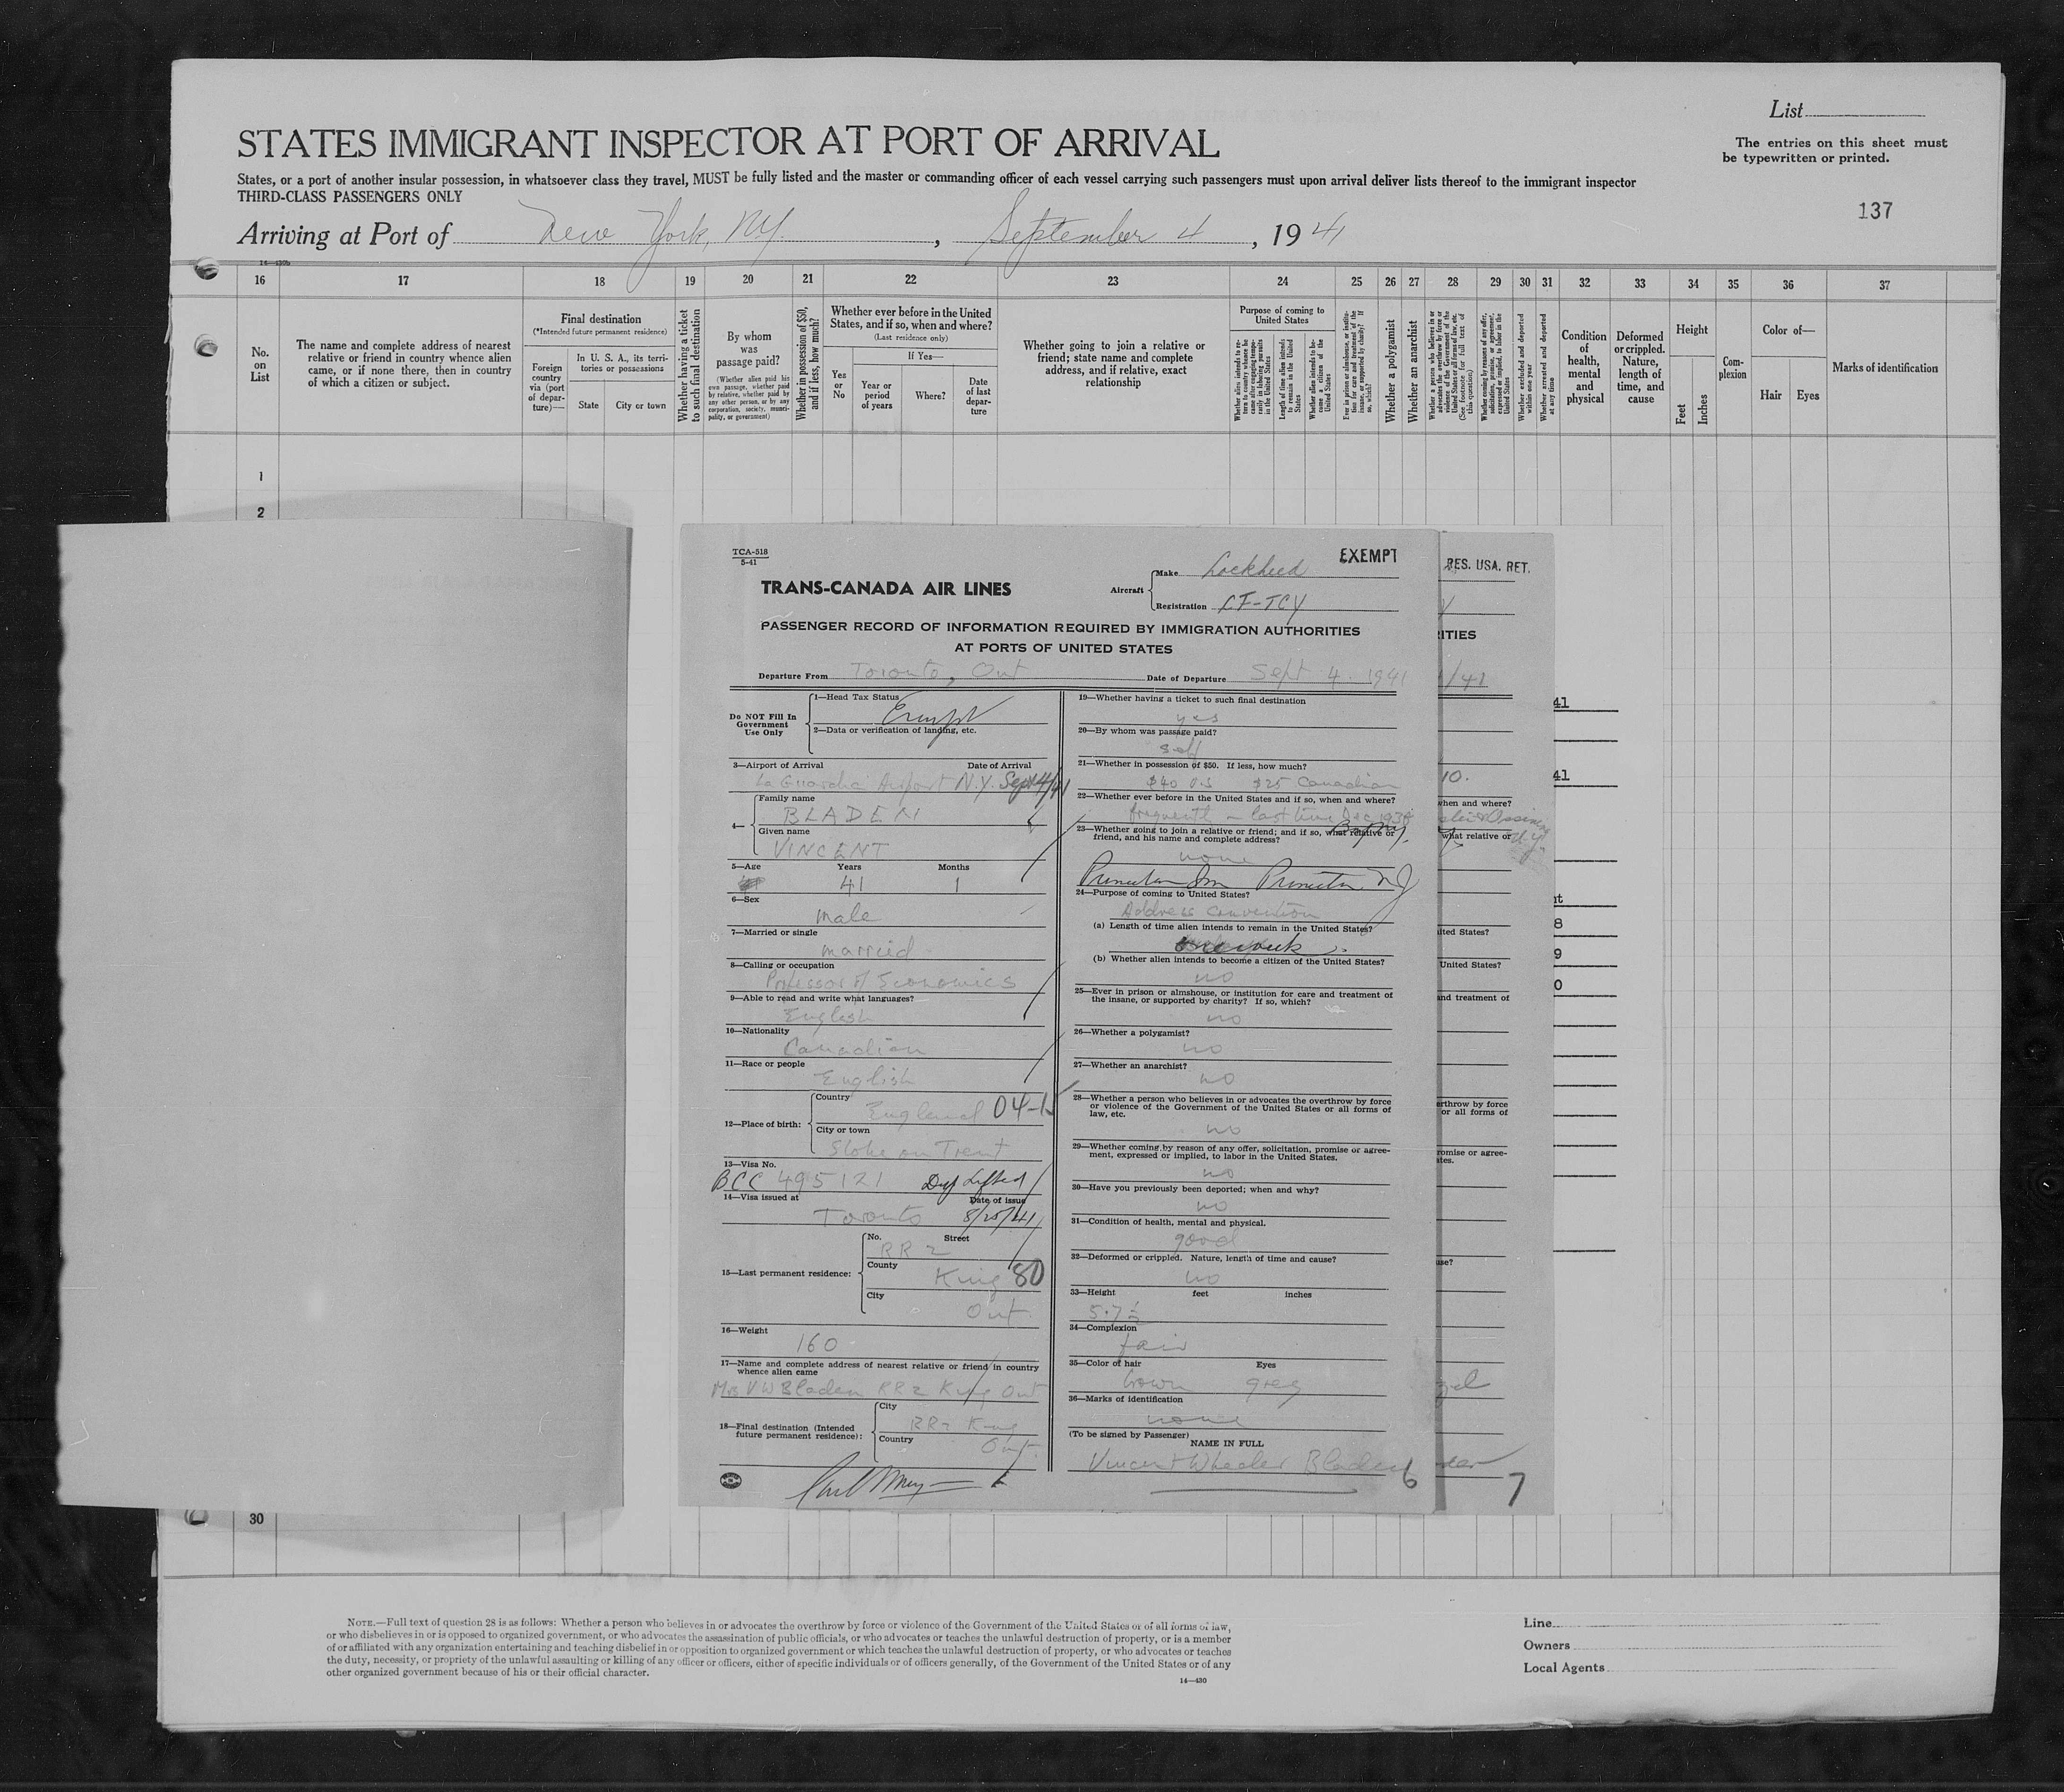 List
STATES IMMIGRANT INSPECTOR AT PORT OF ARRIVAL
The entries on this sheet must
be typewritten or printed.
States, or a port of another insular possession, in whatsoever class they travel, MUST be fully listed and the master or commanding officer of each vessel carrying such passengers must upon arrival deliver lists thereof to the immigrant inspector
THIRD-CLASS PASSENGERS ONLY
137
Arriving at Port of New York, N.Y. , September 4 , 1941
16 17 18 19 20 21 22 23 24 25 26 27 28 29 30 31 32 33 34 35 36 37
No.
on
List
The name and complete address of nearest
relative or friend in country whence alien
came, or if none there, then in country
of which a citizen or subject.
Final destination
(*Intended future permanent residence)
Foreign
country
via (port
of depar-
ture)—
In U. S. A., its terri-
tories or possessions
State
City or town
Whether having a ticket
to such final destination
By whom
was
passage paid?
(Whether alien paid his
own passage, whether paid
by relative, whether paid by
any other person, or by any
corporation, society, munici-
pality, or government)
Whether in possession of $50,
and if less, how much?
Whether ever before in the United
States, and if so, when and where?
(Last residence only)
Yes
or
No
If Yes—
Year or
period
of years
Where?
Date
of last
depar-
ture
Whether going to join a relative or
friend; state name and complete
address, and if relative, exact
relationship
Purpose of coming to
United States
Length of time alien intends
to remain in the United
States
Whether alien intends to be-
come a citizen of the
United States
Whether a polygamist
Whether an anarchist
Whether excluded and deported
within one year
Whether arrested and deported
at any time
Condition
of
health,
mental
and
physical
Deformed
or crippled.
Nature,
length of
time, and
cause
Height
Feet
Inches
Com-
plexion
Color of—
Hair
Eyes
Marks of identification
1
2
30
TCA-518
5-41
TRANS-CANADA AIR LINES
Aircraft
Make Lockheed
Registration CF-TCY
EXEMPT
PASSENGER RECORD OF INFORMATION REQUIRED BY IMMIGRATION AUTHORITIES
AT PORTS OF UNITED STATES
Departure From Toronto, Ont Date of Departure Sept 4 1941
Do NOT Fill In
Government
Use Only
1—Head Tax Status
Exempt
2—Data or verification of landing, etc.
3—Airport of Arrival Date of Arrival
La Guardia Airport N.Y. Sept 4/41
4—
Family name
BLADEN
Given name
VINCENT
5—Age Years Months
41 1
6—Sex
male
7—Married or single
married
8—Calling or occupation
Professor of Economics
9—Able to read and write what languages?
English
10—Nationality
Canadian
11—Race or people
English
12—Place of birth:
Country
England 04-1
City or town
Stoke on Trent
13—Visa No.
BCC 495121 Dup Lifted
14—Visa issued at Date of issue
Toronto 8/25/41
15—Last permanent residence:
No. Street
RR 2
County
King 80
City
Ont.
16—Weight
160
17—Name and complete address of nearest relative or friend in country
whence alien came
Mrs VW Bladen RR 2 King Ont
18—Final destination (Intended
future permanent residence):
City
RR2 King
Country
Ont.
19—Whether having a ticket to such final destination
yes
20—By whom was passage paid?
self
21—Whether in possession of $50. If less, how much?
$40 U.S $25 Canadian
22—Whether ever before in the United States and if so, when and where?
frequently - last time Dec 1938
23—Whether going to join a relative or friend; and if so, what relative or
friend, and his name and complete address?
none
Princeton Inn Princeton NJ
24—Purpose of coming to United States?
Address convention
(a) Length of time alien intends to remain in the United States?
one week
(b) Whether alien intends to become a citizen of the United States?
no
25—Ever in prison or almshouse, or institution for care and treatment of
the insane, or supported by charity? If so, which?
no
26—Whether a polygamist?
no
27—Whether an anarchist?
no
28—Whether a person who believes in or advocates the overthrow by force
or violence of the Government of the United States or all forms of
law, etc.
no
29—Whether coming by reason of any offer, solicitation, promise or agree-
ment, expressed or implied, to labor in the United States.
no
30—Have you previously been deported; when and why?
no
31—Condition of health, mental and physical.
good
32—Deformed or crippled. Nature, length of time and cause?
no
33—Height feet inches
5.7½
34—Complexion
fair
35—Color of hair Eyes
brown grey
36—Marks of identification
none
(To be signed by Passenger)
NAME IN FULL
Vincent Wheeler Bladen
6
RES. USA. RET.
ITIES
1/41
10.
when and where?
what relative or
ited States?
United States?
and treatment of
erthrow by force
or all forms of
romise or agree-
tes.
use?
7
41
41
nt
8
9
0
NOTE.—Full text of question 28 is as follows: Whether a person who believes in or advocates the overthrow by force or violence of the Government of the United States or of all forms of law,
or who disbelieves in or is opposed to organized government, or who advocates the assassination of public officials, or who advocates or teaches the unlawful destruction of property, or is a member
of or affiliated with any organization entertaining and teaching disbelief in or opposition to organized government or which teaches the unlawful destruction of property, or who advocates or teaches
the duty, necessity, or propriety of the unlawful assaulting or killing of any officer or officers, either of specific individuals or of officers generally, of the Government of the United States or of any
other organized government because of his or their official character.
14—430
Line
Owners
Local Agents